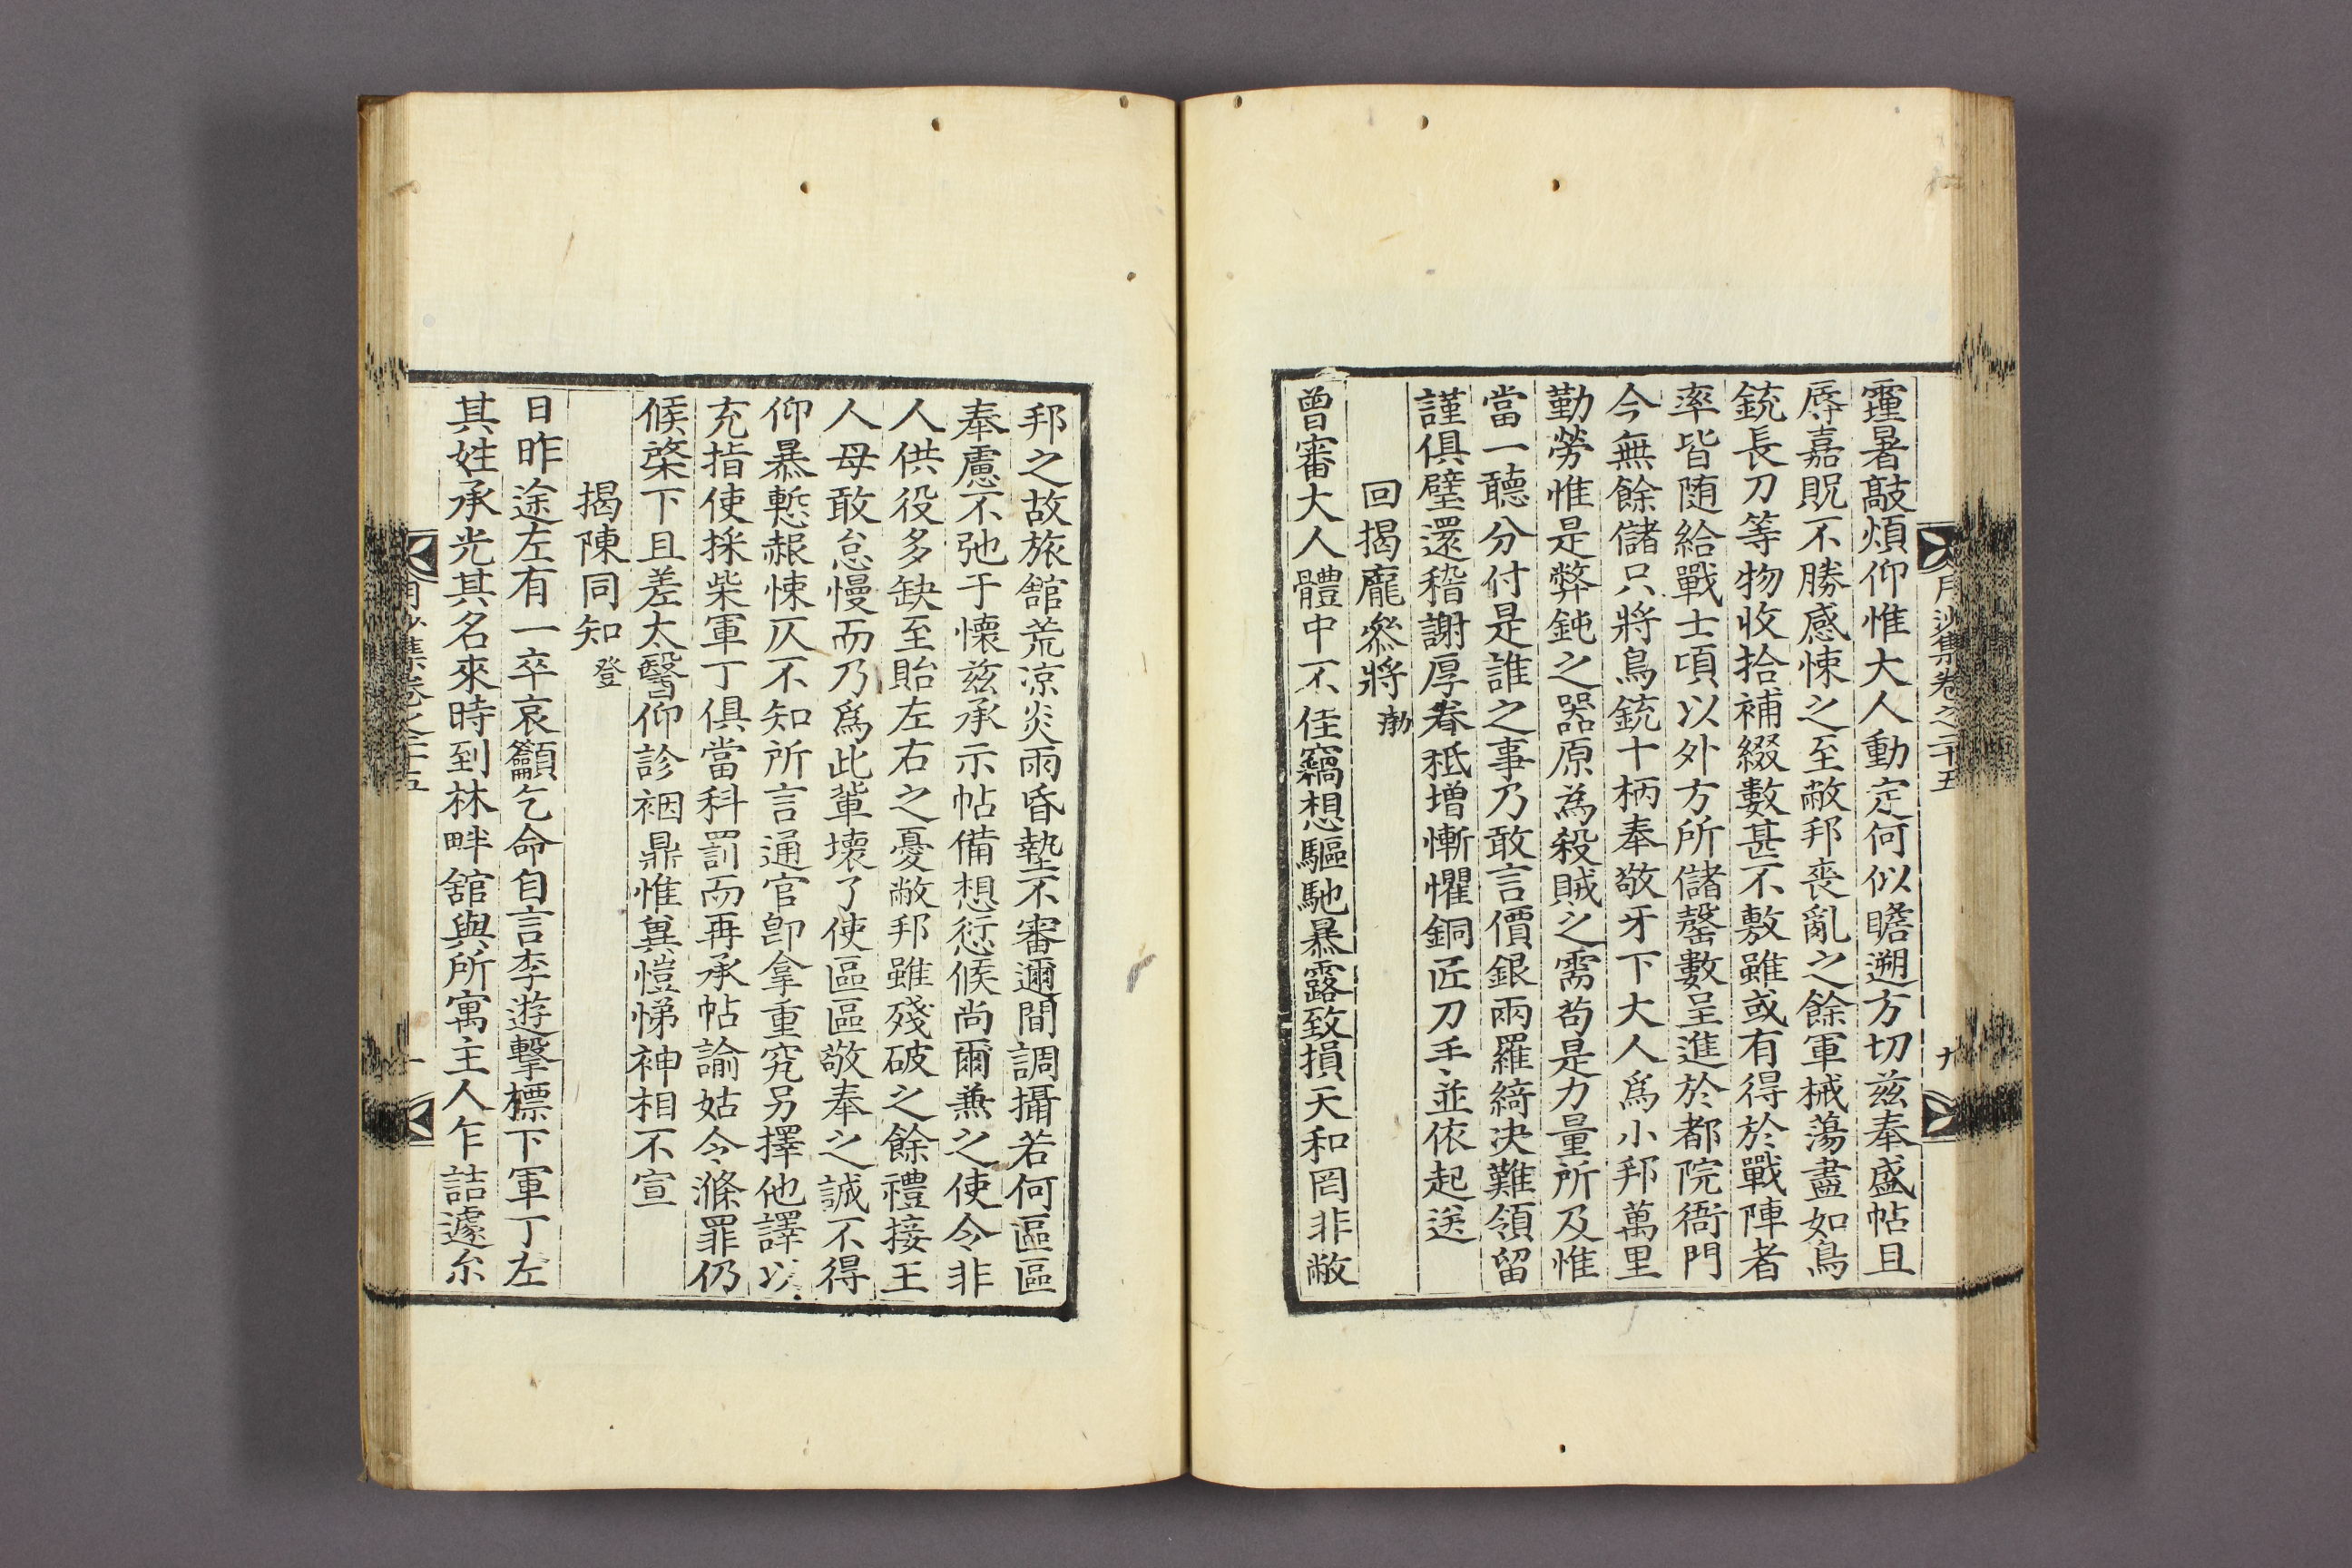 月沙集卷之二十五
霾暑敲煩仰惟大人動定何似瞻遡方切茲奉盛帖且
辱嘉貺不勝感悚之至敝邦喪亂之餘軍械蕩盡如鳥
銃長刀等物收拾補綴數甚不敷雖或有得於戰陣者
率皆随給戰士頃以外方所儲罄數呈進於都院衙門
今無餘儲只將鳥銃十柄奉敬牙下大人爲小邦萬里
勤勞惟是弊鈍之器原為殺賊之需苟是力量所及惟
當一聽分付是誰之事乃敢言價銀兩羅綺决難領留
謹俱璧還稽謝厚眷秪增慚懼銅匠刀手並依起送
回揭龐叅將
曾審大人體中不佳竊想驅馳暴露致損天和罔非敝
邦之故旅舘荒凉炎雨昏墊不審邇間調攝若何區區
奉慮不弛于懷茲承示帖備想愆候尚爾兼之使令非
人供役多缺至貽左右之憂敝邦雖殘破之餘禮接王
人毋敢怠慢而乃爲此輩壞了使區區敬奉之誠不得
仰暴慙赧悚仄不知所言通官卽拿重究另擇他譯以
充指使採柴軍丁俱當科罰而再承帖諭姑令滌罪仍
候棨下且差太醫仰診裀鼎惟兾愷悌神相不宣
揭陳同知 登
日昨途左有一卒哀籲乞命自言李遊擊標下軍丁左
其姓承光其名來時到林畔舘與所寓主人乍詰遽尒